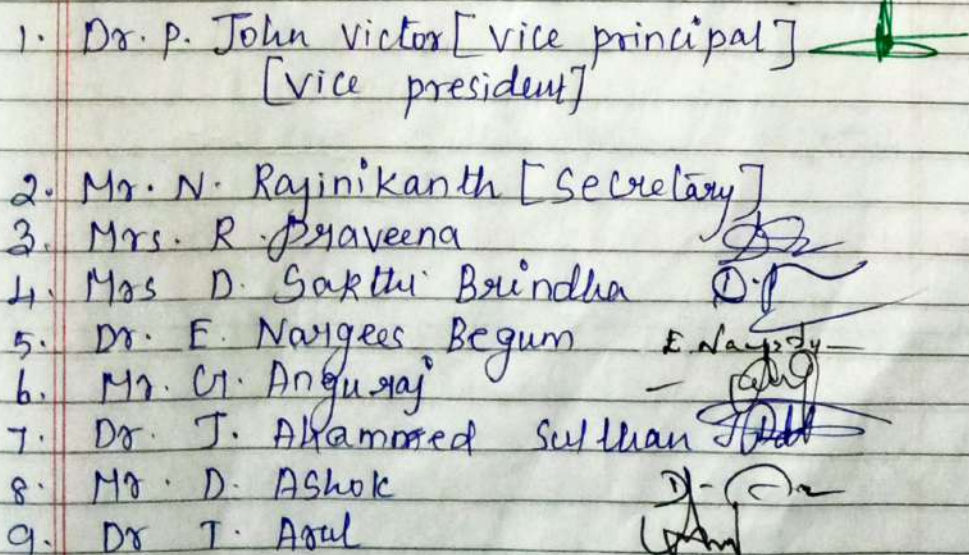 1. Dr. P. John Victor [Vice principal]
[Vice president]
2. Mr. N. Rajinikanth [Secretary]
3. Mrs. R. Praveena
4. Mrs D. Sakthi Brindha D.P
5. Dr. E. Nargees Begum
6. Mr. G. Anguraj
7. Dr. J. Ahammed Sulthan
8. Mr. D. Ashok
9. Dr T. Arul